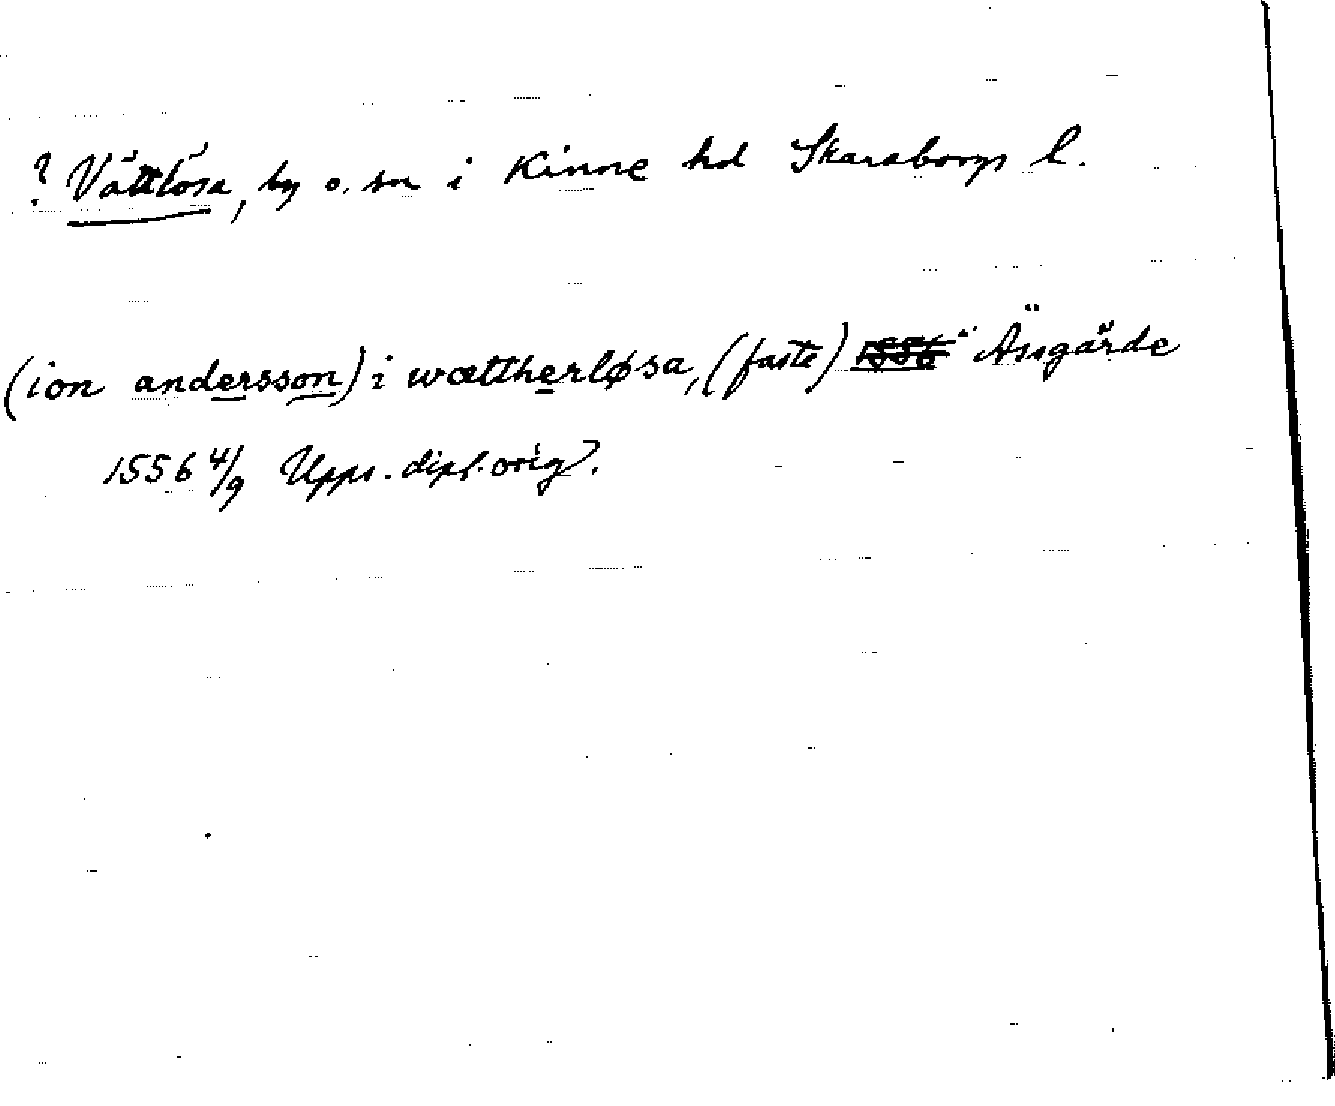 ? Vättlösa, by o. sn i Kinne hd Skaraborgs l.
(ion andersson) i wættherløsa, (faste) 1556 Äsgärde
1556 4/9 Upps. dipl. orig.